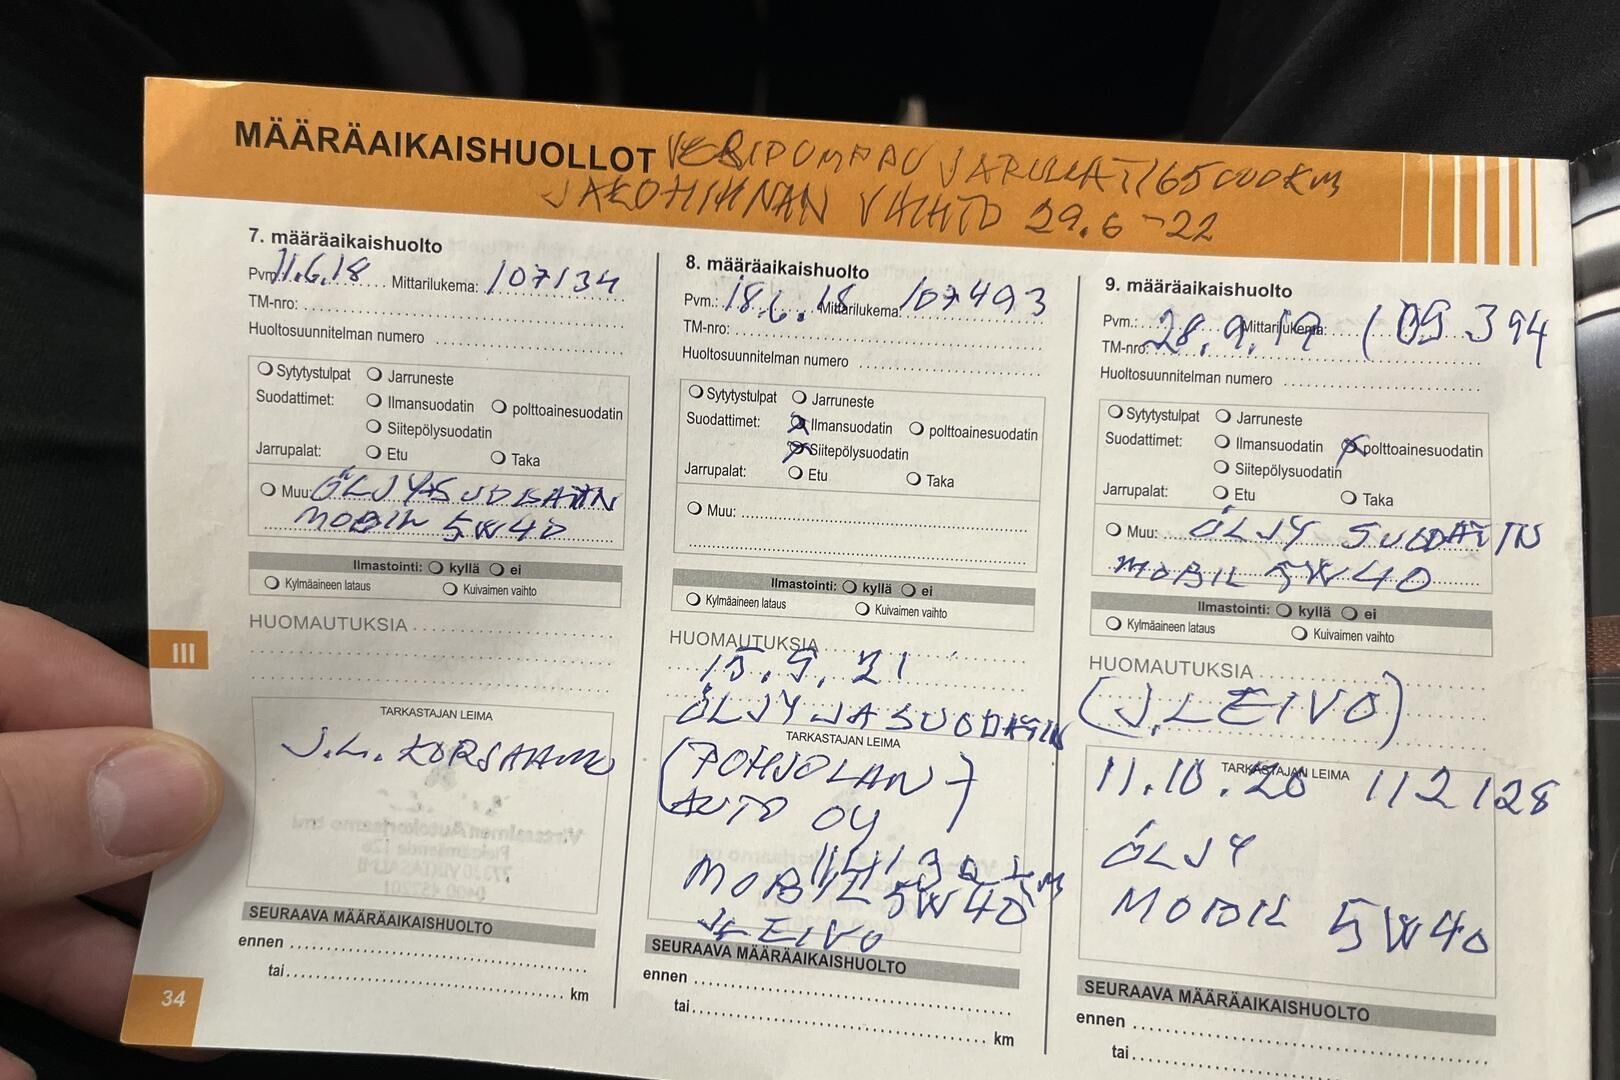 MÄÄRÄAIKAISHUOLLOT
JAKOHIHNAN VAIHTO 29.6-22
7. määräaikaishuolto
Pvm.: 11.6.18 Mittarilukema: 107134
TM-nro:
Huoltosuunnitelman numero
Sytytystulpat Jarruneste
Suodattimet: Ilmansuodatin polttoainesuodatin
Siitepölysuodatin
Jarrupalat: Etu Taka
Muu: ÖLJY
MOBIL 5W40
Ilmastointi: kyllä ei
Kylmäaineen lataus Kuivaimen vaihto
HUOMAUTUKSIA
TARKASTAJAN LEIMA
J.L. KORJAAMO
SEURAAVA MÄÄRÄAIKAISHUOLTO
ennen
tai km
8. määräaikaishuolto
Pvm.: 18.6.18 Mittarilukema: 107493
TM-nro:
Huoltosuunnitelman numero
Sytytystulpat Jarruneste
Suodattimet: Ilmansuodatin polttoainesuodatin
Siitepölysuodatin
Jarrupalat: Etu Taka
Muu:
Ilmastointi: kyllä ei
Kylmäaineen lataus Kuivaimen vaihto
HUOMAUTUKSIA
15.9.21
ÖLJY JA SUODATIN
TARKASTAJAN LEIMA
(POHJOLAN)
AUTO OY
MOBIL 5W40
J.LEIVO
SEURAAVA MÄÄRÄAIKAISHUOLTO
ennen
tai km
9. määräaikaishuolto
Pvm.: 28.9.19 Mittarilukema: 109 394
TM-nro:
Huoltosuunnitelman numero
Sytytystulpat Jarruneste
Suodattimet: Ilmansuodatin polttoainesuodatin
Siitepölysuodatin
Jarrupalat: Etu Taka
Muu: ÖLJY SUODATIN
MOBIL 5W40
Ilmastointi: kyllä ei
Kylmäaineen lataus Kuivaimen vaihto
HUOMAUTUKSIA
(J.LEIVO)
TARKASTAJAN LEIMA
11.10.20 112128
ÖLJY
MOBIL 5W40
SEURAAVA MÄÄRÄAIKAISHUOLTO
ennen
tai
III
34